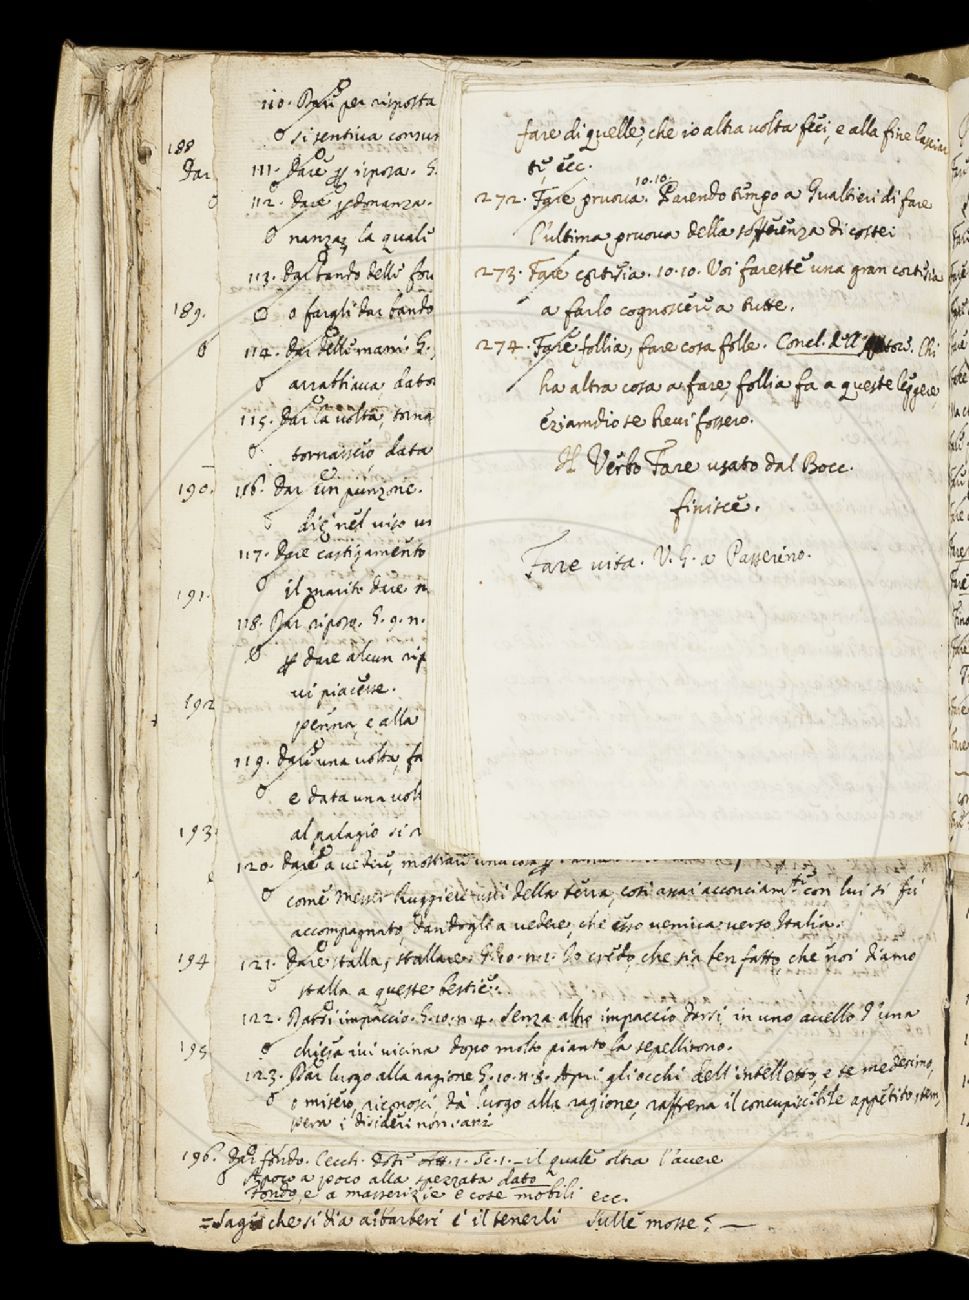 110. Dare per risposta
si sentiva consu
188
Dar
111. Dare riposo. G.
112. Dare
nanza, la quale
113. Dar bando delle for
189.
o fargli dar bando
114. Dar delle mani G.
arrabbiava, dato
115. Dar la volta, torna
tornassero data
190.
116. Dar un punzone.
die nel viso un
117. Dare castigamento
191.
il marito dare
118. Dar riposo. G. 9. n.
dare alcun rip
vi piacesse.
192
penna, e alla
119. Dare una volta, fa
e data una volt
193.
al palagio si
120. Dare a vedere, mostrare una cosa
come Messer Ruggieri uscì della terra, così assai acconciam.te con lui si fu
accompagnato, dandogli a vedere, che esso veniva verso Italia.
194
121. Dare stalla, stallare. G. 10. n. 2. Io credo, che sia ben fatto, che noi diamo
stalla a queste bestie.
122. Darsi impaccio. G. 10. n. 4. Senza altro impaccio darsi in uno avello d'una
195
chiesa ivi vicina dopo molto pianto la sepellirono.
123. Dar luogo alla ragione G. 10. n. 8. Apri gli occhi dell'intelletto, e te medesimo,
o misero, riconosci, dà luogo alla ragione, raffrena il concupiscibile appetito, tem,
pera i disideri non sani
196. Dar fondo. Cecch. Dote att. 1. Sc. 1. - il quale oltra l'avere
A poco a poco alla spezzata dato
Fondo, e a masserizie e cose mobili ecc.
= Sagù che si dia a i Barberi è il tenerli sulle mosse? —
fare di quelle, che io altra volta feci, e alla fine lasciar
te ecc.
272. Fare pruova. 10. 10. Parendo tempo a Gualtieri di fare
l'ultima pruova della sofferenza di costei
273. Fare cortesia. 10. 10. Voi fareste una gran cortesia
a farlo cognoscere a tutte.
274. Fare follia, fare cosa folle. Concl. dell' Autore. Chi
ha altra cosa a fare, follia fa a queste leggere,
eziamdio se brevi fossero.
Il Verbo Fare usato dal Bocc.
finisce.
Fare vita. V. G. a Passerino.